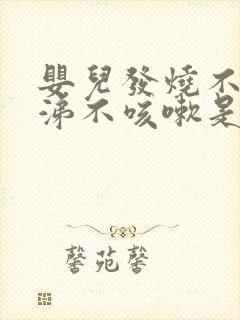 嬰兒發燒不
涕不咳嗽是
馨苑馨